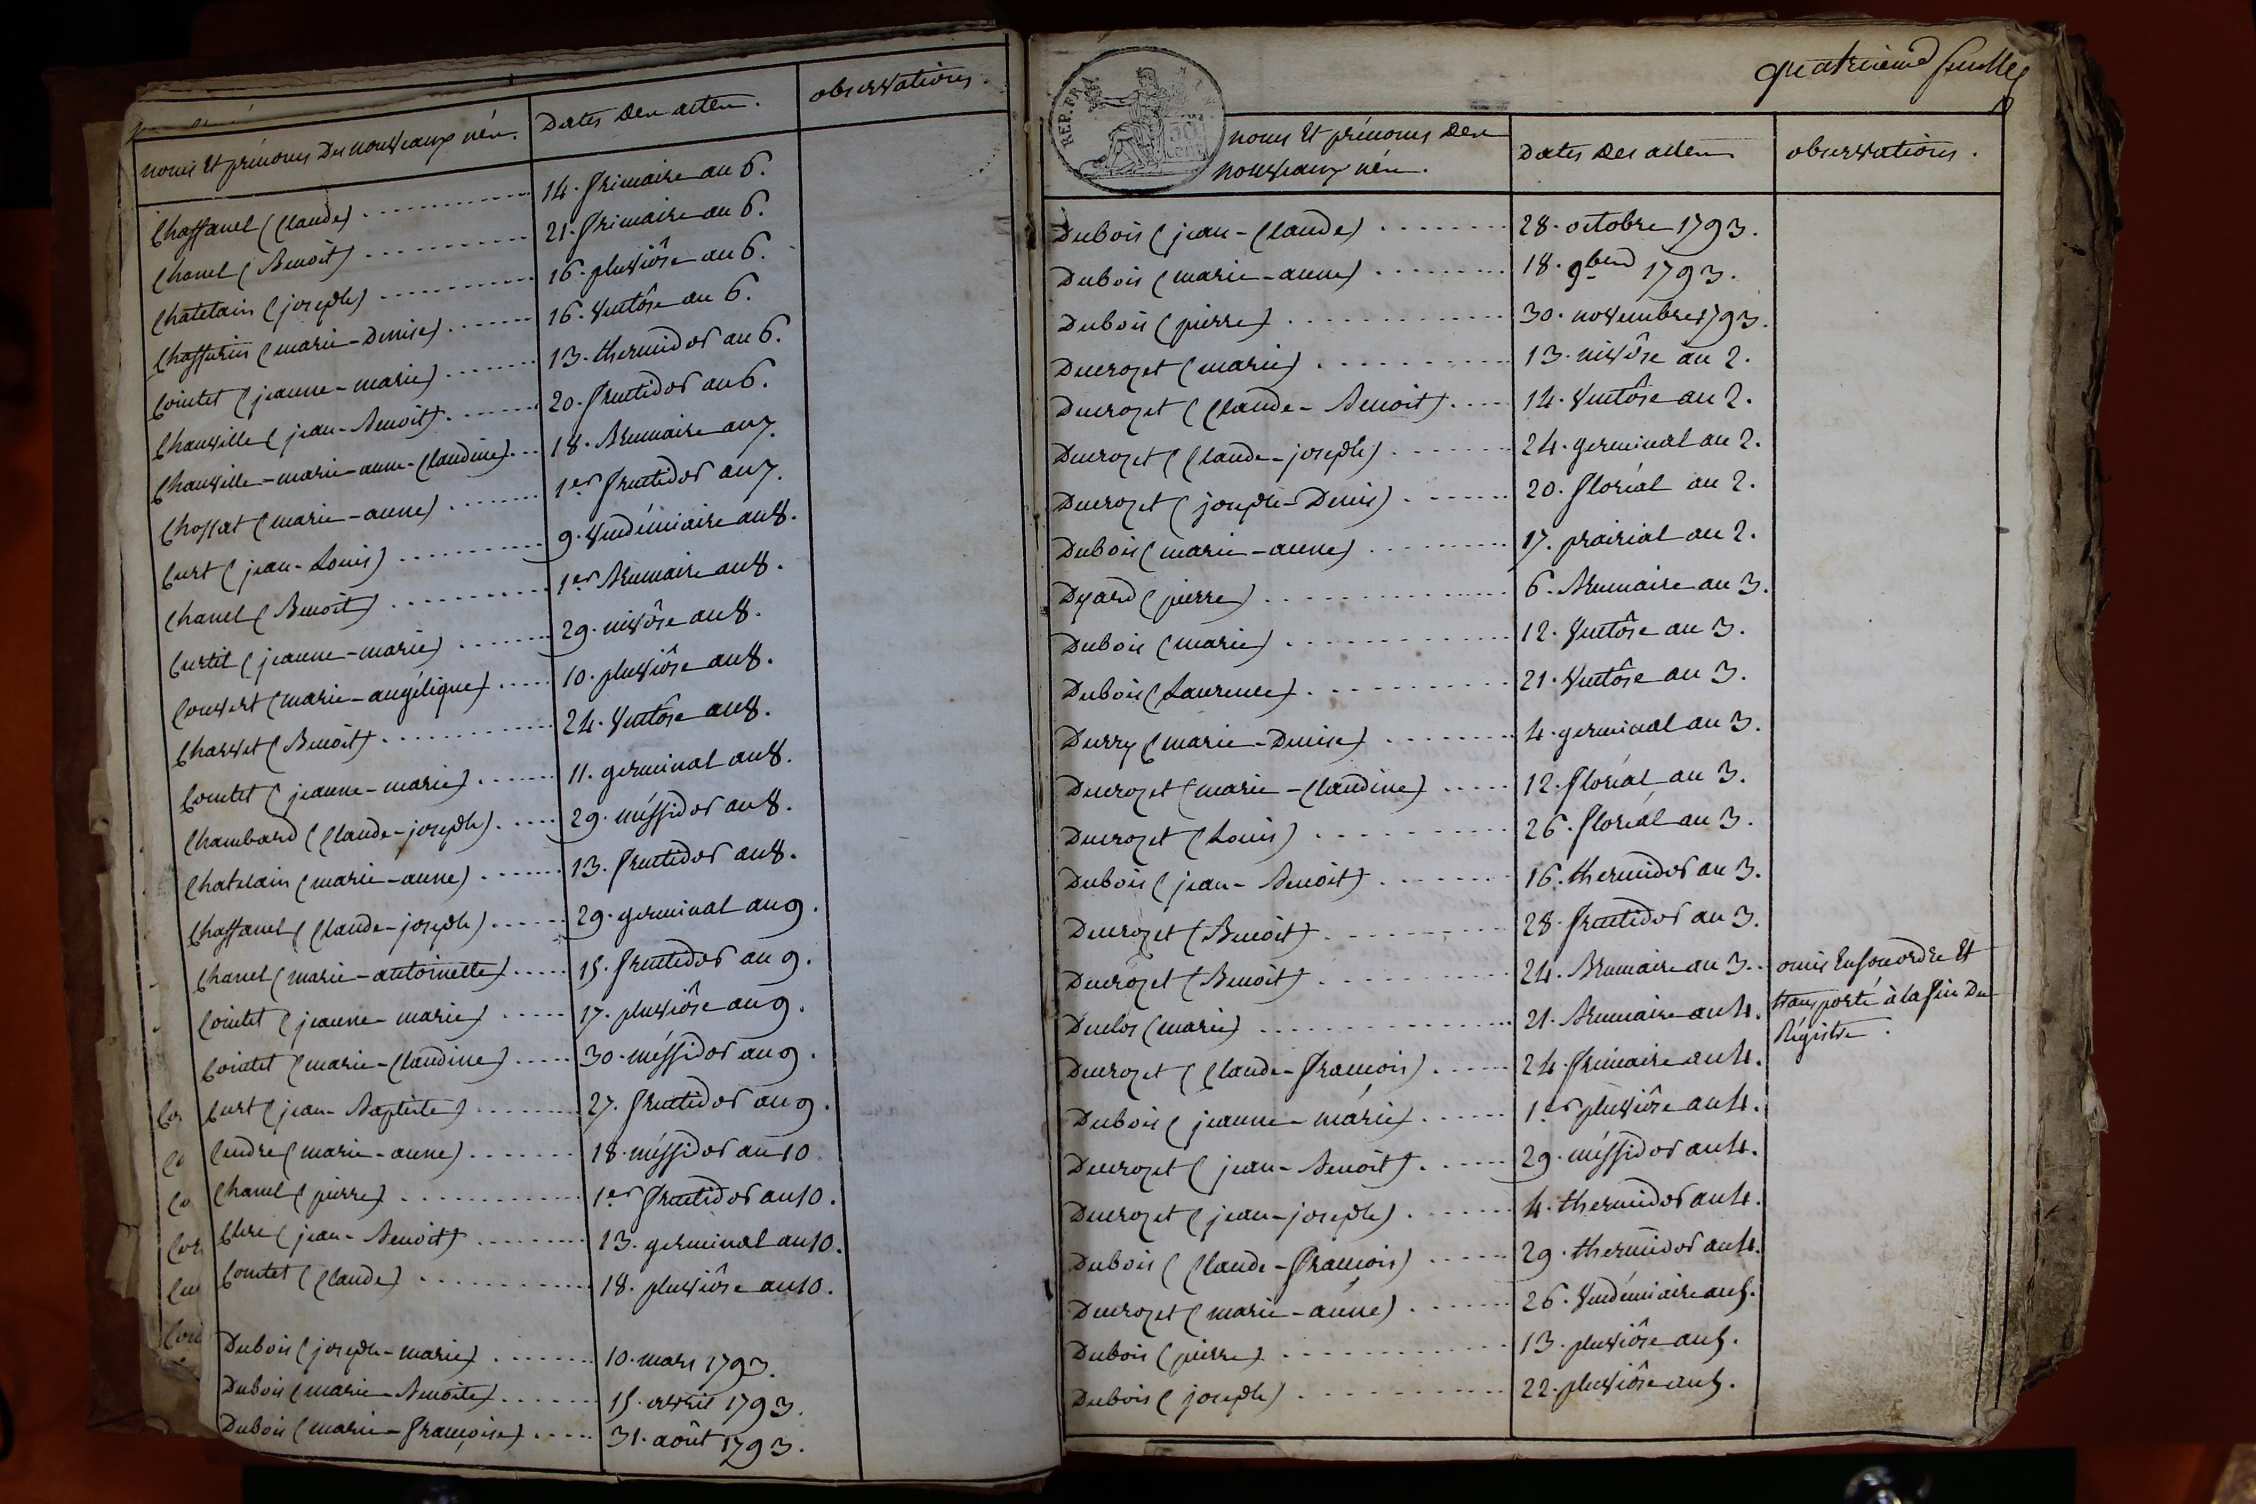 noms et prénoms des nouveaux nés. Dates des actes. observations.
Chaffanel (Claude) 14. frimaire an 6.
Chanel (Benoit) 21. frimaire an 6.
Chatelain (joseph) 16. pluviôse an 6.
Chaffurin (marie-Denise) 16. Ventôse an 6.
Cointet (jeanne-marie) 13. thermidor an 6.
Chauville (jean-Benoit) 20. fructidor an 6.
Chauville-marie-anne-Claudine) 18. Brumaire an 7.
Chossat (marie-anne) 1er fructidor an 7.
Curt (jean-Louis) 9. Vendémiaire an 8.
Chanel (Benoit) 1er Brumaire an 8.
Curtil (jeanne-marie) 29. nivôse an 8.
Couvert (marie-angélique) 10. pluviôse an 8.
Charvet (Benoit) 24. Ventôse an 8.
Cointet (jeanne-marie) 11. germinal an 8.
Chambard (Claude-joseph) 29. méssidor an 8.
Chatelain (marie-anne) 13. fructidor an 8.
Chaffanel (Claude-joseph) 29. germinal an 9.
Chanel (marie-antoinette) 15. fructidor an 9.
Cointet (jeanne-marie) 17. pluviôse an 9.
Cointet (marie-Claudine) 30. méssidor an 9.
Curt (jean-Baptiste) 27. fructidor an 9.
Cendre (marie-anne) 18. méssidor an 10.
Chanel (pierre) 1er fructidor an 10.
Clere (jean-Benoit) 13. germinal an 10.
Cointet (Claude) 18. pluviôse an 10.
Dubois (joseph-marie) 10. mars 1793.
Dubois (marie-Benoite) 15. avril 1793.
Dubois (marie-françoise) 31. août 1793.
quatrieme feuille
REP. FRA
50
CENT
noms et prénoms des
nouveaux nés. Dates des actes observations.
Dubois (jean-Claude) 28. octobre 1793.
Dubois (marie-anne) 18. 9bre 1793.
Dubois (pierre) 30. novembre 1793.
Ducrozet (marie) 13. nivôse an 2.
Ducrozet (Claude-Benoit) 14. Ventôse an 2.
Ducrozet (Claude-joseph) 24. germinal an 2.
Ducrozet (joseph-Denis) 20. floréal an 2.
Dubois (marie-anne) 17. prairial an 2.
Dyard (pierre) 6. Brumaire an 3.
Dubois (marie) 12. Ventôse an 3.
Dubois (Laurence) 21. Ventôse an 3.
Durry (marie-Denise) 4. germinal an 3.
Ducrozet (marie-Claudine) 12. floréal an 3.
Ducrozet (Louis) 26. floréal an 3.
Dubois (jean-Benoit) 16. thermidor an 3.
Ducrozet (Benoit) 28. fructidor an 3.
Ducrozet (Benoit) 24. Brumaire an 3. omis En son ordre Et
Duclos (marie) 21. Brumaire an 4. transporté à la fin du
Régistre.
Ducrozet (Claude-françois) 24. frimaire an 4.
Dubois (jeanne-marie) 1er pluviôse an 4.
Ducrozet (jean-Benoit) 29. méssidor an 4.
Ducrozet (jean-joseph) 4. thermidor an 4.
Dubois (Claude-françois) 29. thermidor an 4.
Ducrozet (marie-anne) 26. Vendémiaire an 5.
Dubois (pierre) 13. pluviôse an 5.
Dubois (joseph) 22. pluviôse an 5.